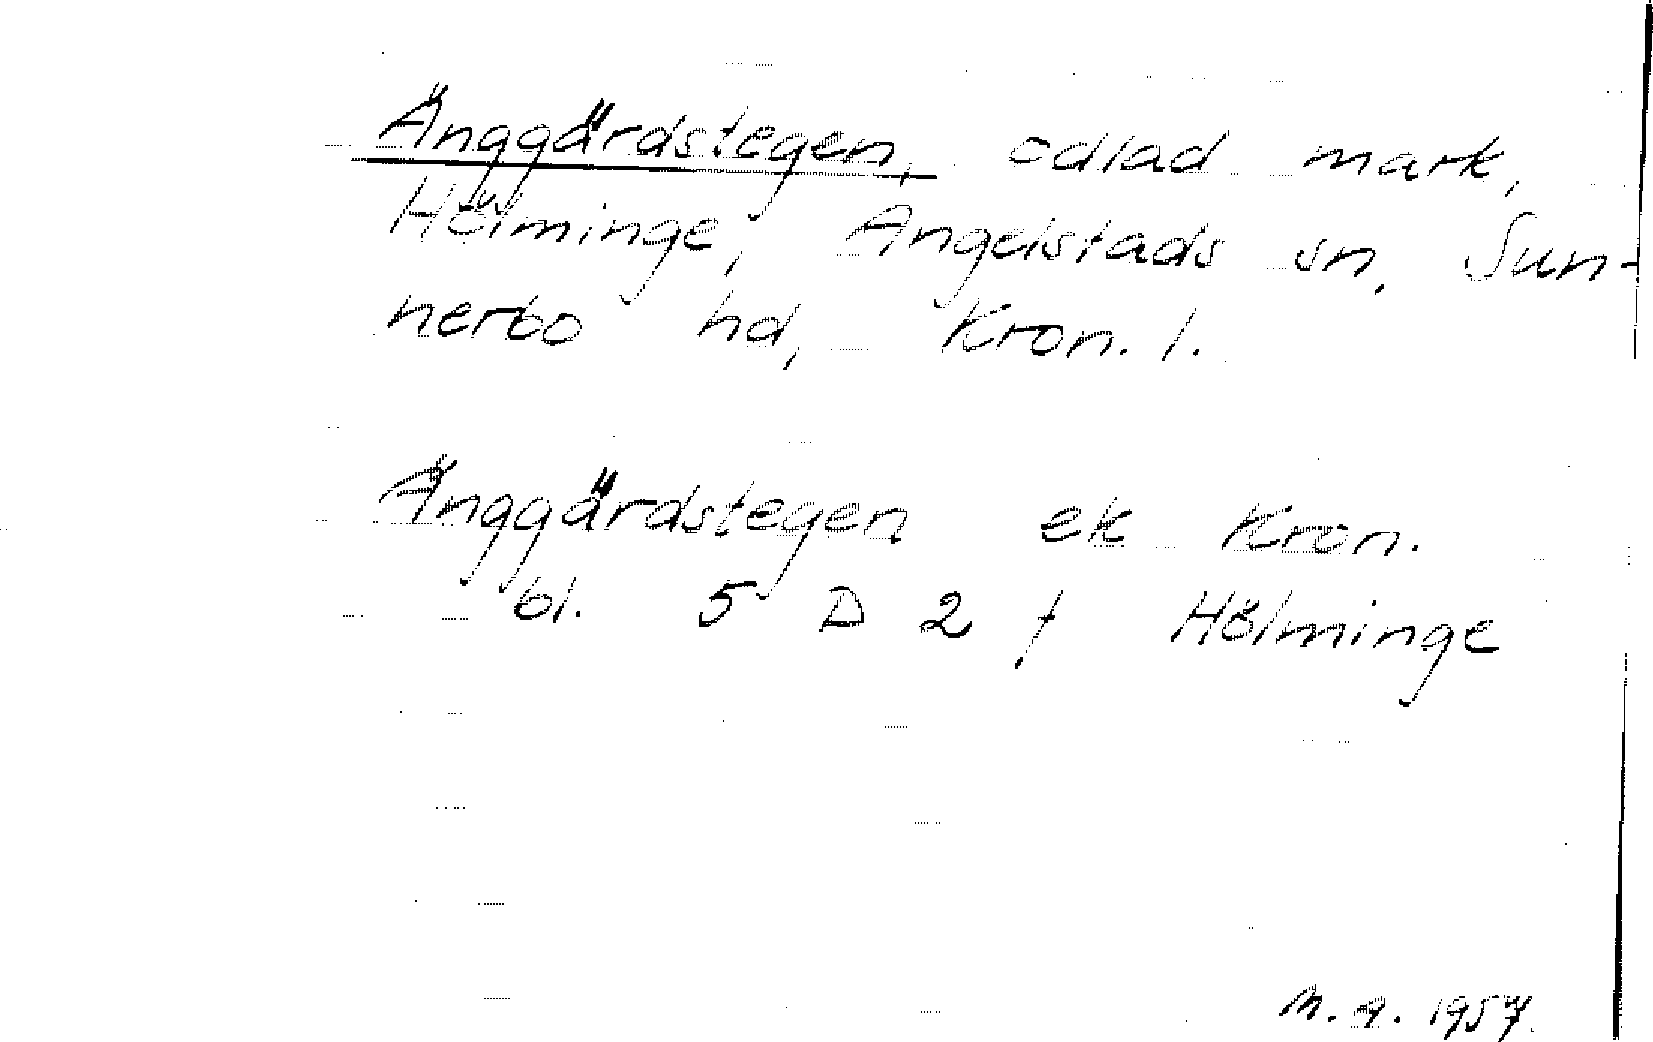 Änggärdstegen, odlad mark,
Hölminge, Angelstads sn, Sun-
nerbo hd, Kron. l.
Änggärdstegen ek Kron.
bl. 5 D 2 f Hölminge
M. A. 1957.